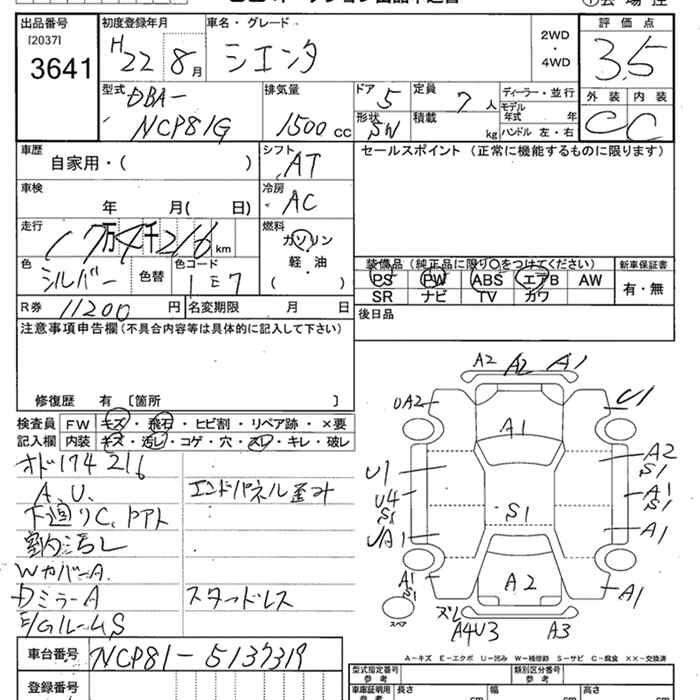 出品番号 初度登録年月 車名・グレード 評価点
[2037] H22 8月 シエンタ 2WD・4WD 3.5
3641
型式 排気量 ドア 5 定員 7人 ディーラー・並行 外装 内装
DBA- モデル年式 年
NCP81G 1500cc 形状 SW 積載 kg ハンドル 左・右 C C
車歴 シフト セールスポイント (正常に機能するものに限ります)
自家用・( ) AT
車検 冷房
年 月( 日) AC
走行 燃料
17万4千216km ガソリン
色 色コード 軽・油 装備品 (純正品に限り○をつけてください) 新車保証書
シルバー 色替 1E7 ( ) PS PW ABS エアB AW 有・無
SR ナビ TV カワ
R券 11200円 名変期限 月 日 後日品
注意事項申告欄(不具合内容等は具体的に記入して下さい)
修復歴 有 〔箇所 〕
検査員 FW キズ・飛石・ヒビ割・リペア跡・×要
記入欄 内装 キズ・汚し・コゲ・穴・スレ・キレ・破レ
オド174216
A、U、 エンドパネル歪み
下廻りC、アト
室内汚し
WカバーA
DミラーA スタッドレス
E/GルームS
車台番号 NCP81-5137319
登録番号
A2 A2 A1
UA2 U1
A1
U1 A2
S1
U4 A1
S1 S1 S1
UA1 A1
A1 A2 A1
スペア
ズレ
A4U3 A3
A-キズ E-エクボ U-凹み W-補修跡 S-サビ C-腐食 ××-交換済
型式指定番号 参考 類別区分番号 参考
車庫証明用 参考 長さ cm 幅 cm 高さ cm